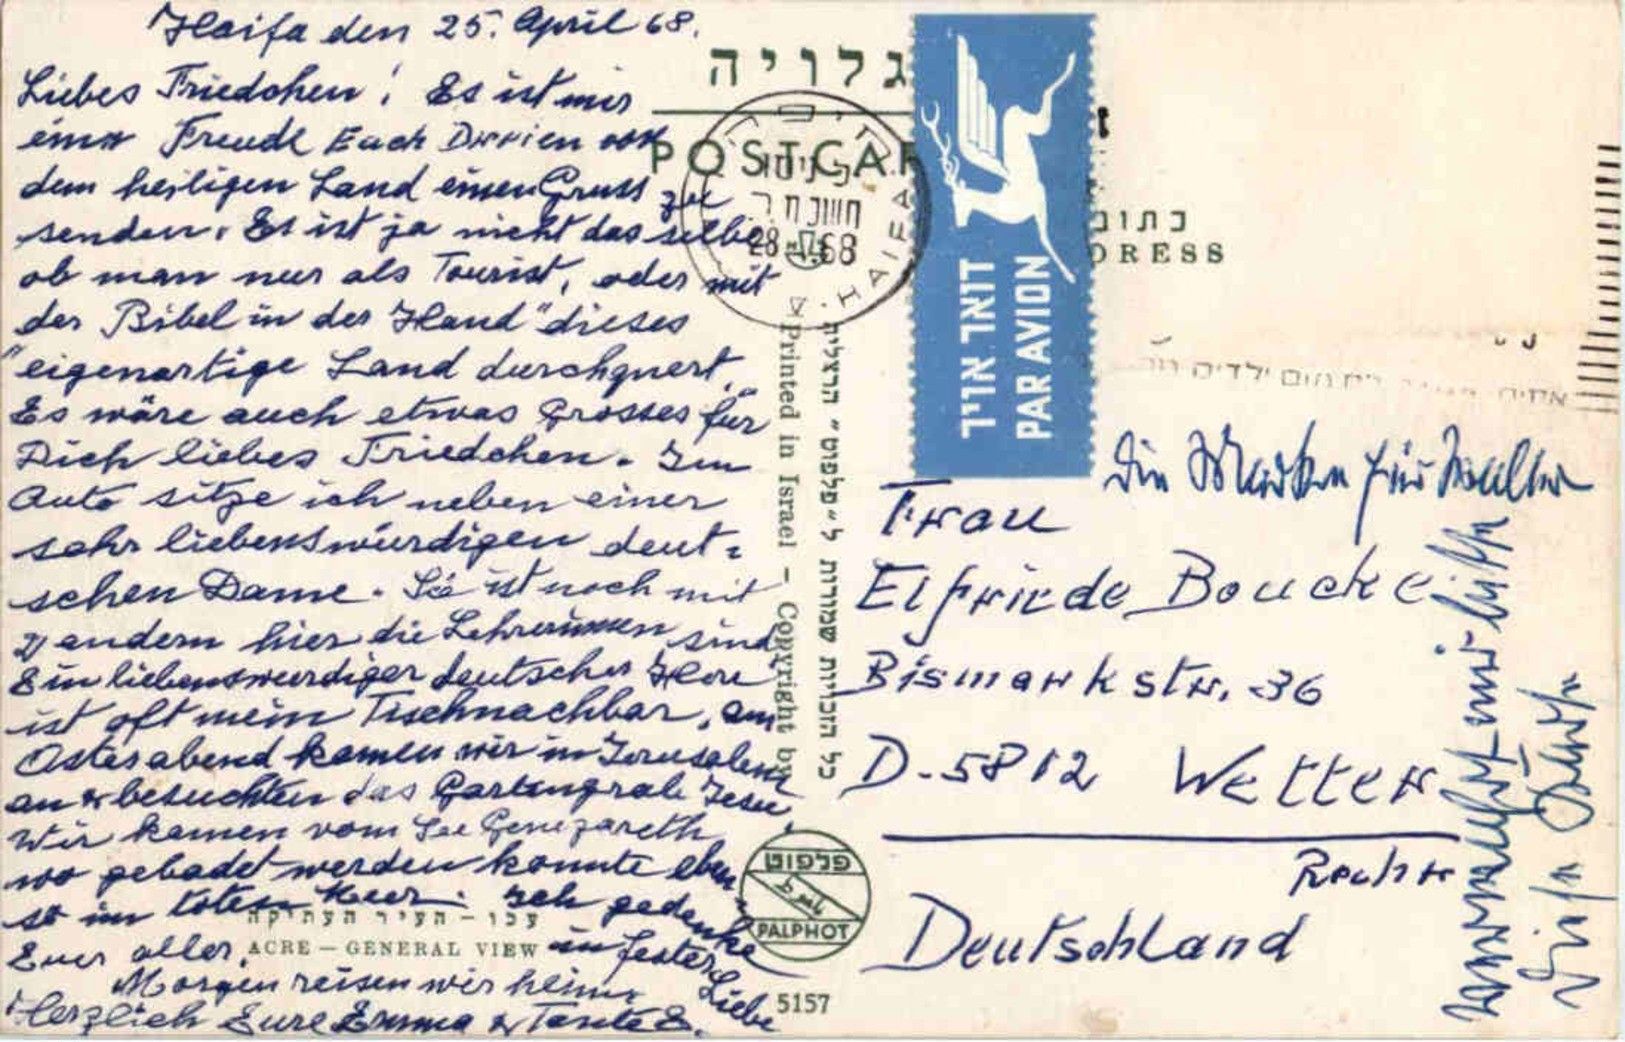 Haifa den 25. April 68.
Liebes Friedchen! Es ist mir
eine Freude Euch Dreien von
dem heiligen Land einen Gruss zu
senden. Es ist ja nicht dasselbe
ob man nur als Tourist, oder mit
der Bibel in der Hand "dieses
"eigenartige Land durchquert."
Es wäre auch etwas Grosses für
Dich liebes Friedchen. Im
Auto sitze ich neben einer
sehr liebenswürdigen deut-
schen Dame. Sie ist noch mit
2 andern hier die Lehrerinnen sind
Ein liebenswürdiger deutscher Herr
ist oft mein Tischnachbar. Am
Osterabend kamen wir in Jerusalem
an & besuchten das Gartengrab Jesu,
Wir kamen vom See Genezareth
wo gebadet werden konnte eben
so im toten Meer. Ich gedenke
Euer aller, in fester Liebe
Morgen reisen wir heim.
Herzlich Eure Emma & Tante E.
גלויה
POSTCAR
HAIFA
28 68
דואר אויר
PAR AVION
כתוב
DRESS
Die Marken für
Frau
Elfriede Boucke
Bismarkstr. 36
D-5812 Wetter
Ruhr
Deutschland
mir bitte
Printed in Israel - Copyright by
כל הזכויות שמורות ל"פלפוט" הרצליה
פלפוט
PALPHOT
עכו - העיר העתיקה
ACRE - GENERAL VIEW
5157